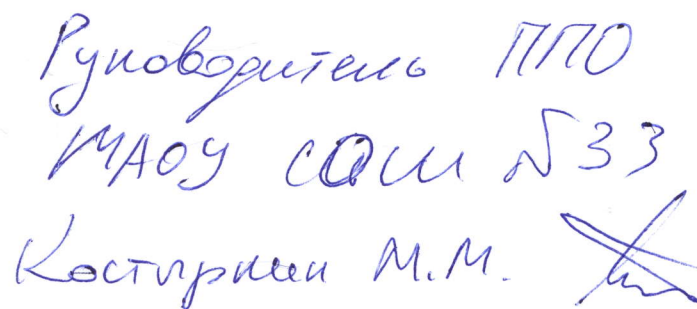 Руководитель ППО
МАОУ СОШ №33
Костыркин М.М.